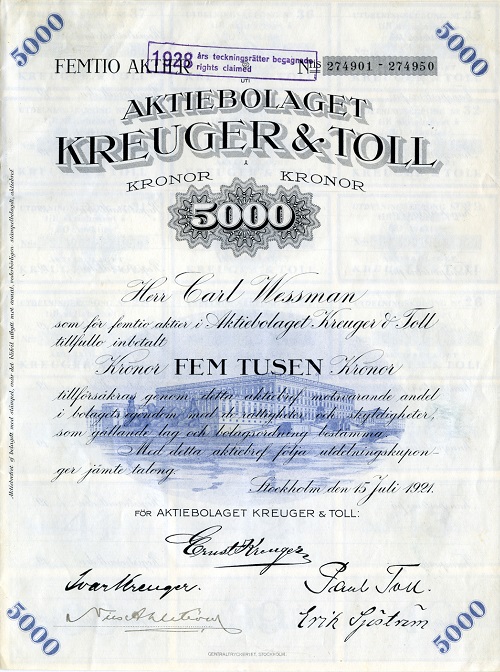 5000
5000
1928 års teckningsrätter begagnade
rights claimed
FEMTIO AKTIER Nris 274901 - 274950
UTI
AKTIEBOLAGET
KREUGER & TOLL
Å
KRONOR KRONOR
5000
Herr Carl Wessman
som för femtio aktier i Aktiebolaget Kreuger & Toll
tillfullo inbetalt
Kronor FEM TUSEN Kronor
tillförsäkras genom detta aktiebref motsvarande andel
i bolagets egendom med de rättigheter och skyldigheter,
som gällande lag och bolagsordning bestämma.
Med detta aktiebref följa utdelningskupon-
ger jämte talong.
Stockholm den 15 Juli 1921.
FÖR AKTIEBOLAGET KREUGER & TOLL:
Ernst Kreuger
Ivar Kreuger. Paul Toll.
Erik Sjöström
5000
5000
GENERALTRYCKERIET, STOCKHOLM.